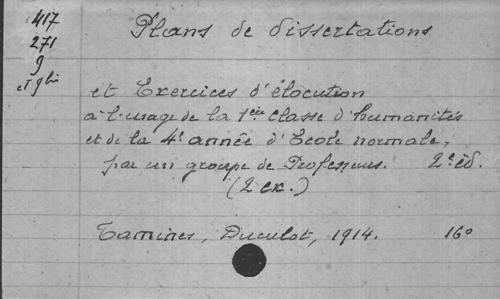 417
271
9
et 9 bis
Plans de dissertations
et Exercices d'élocution
à l'usage de la 1ère classe d'humanités
et de la 4e année d'Ecole normale,
par un groupe de Professeurs. 2e éd.
(2 ex.)
Tamines, Duculot, 1914. 16°